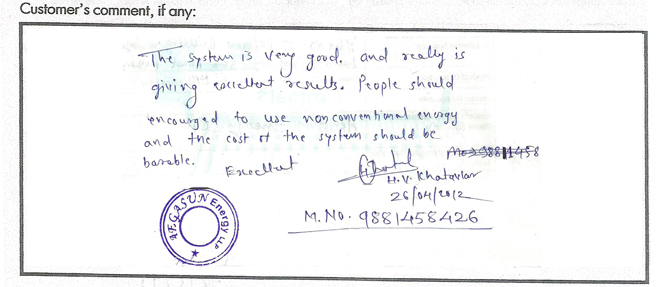 Customer's comment, if any:
The system is very good. and really is
giving excellent results. People should
encourged to use nonconventional energy
and the cost of the system should be
barable.
Excellent
H.V. Khatavkar
26/04/2012
M. No. 9881458426
MEGASUN Energy LLP